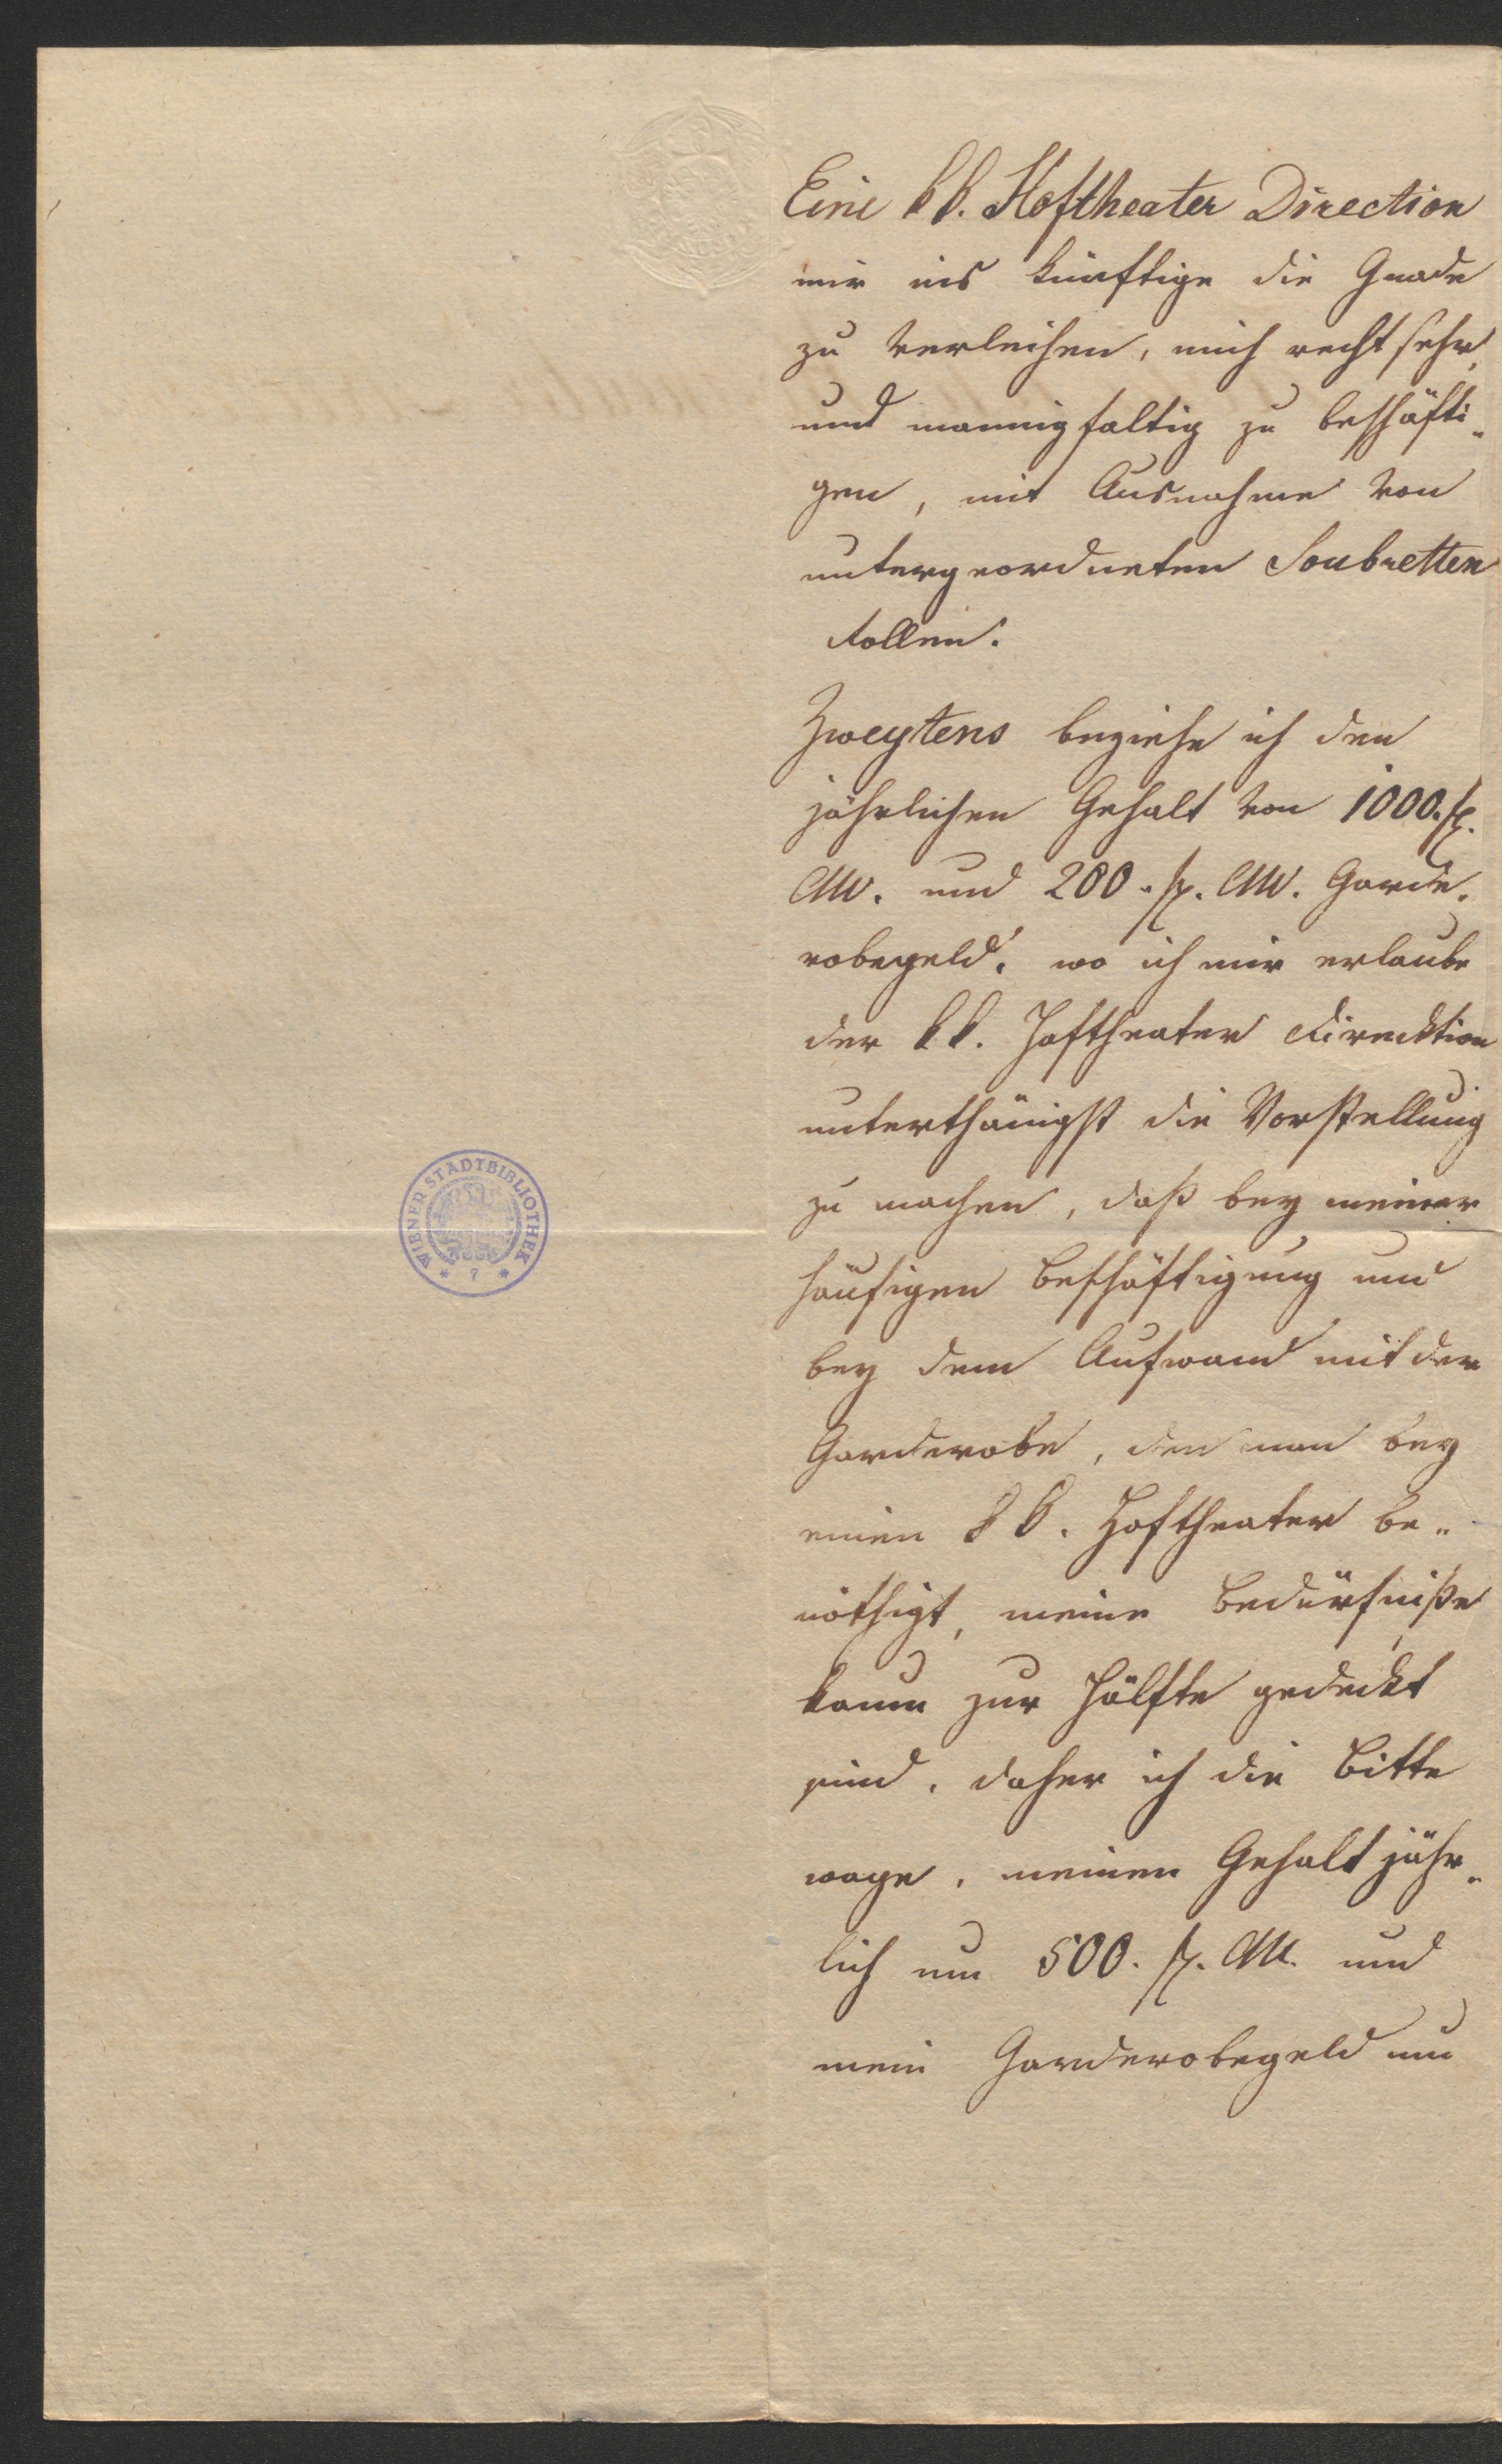 Eine k k. Hoftheater Direction
mir ins künftige die Gnade
zu verleihen, mich recht sehr
und mannigfaltig zu beschäfti„
gen, mit Ausnahme von
untergeordneten Soubretten
Rollen.
Zweytens beziehe ich den
jährlichen Gehalt von 1000. fl.
CM. und 200. fl. CM. Garde„
robegeld, wo ich mir erlaube
der k k. Hoftheater Direcktion
unterthänigst die Vorstellung
zu machen, daß bey meiner
häufigen Beschäftigung und
bey dem Aufwand mit der
Garderobe, den man bey
einen k k. Hoftheater be„
nöthigt, meine Bedürfniße
kaum zur Hälfte gedeckt
sind, daher ich die Bitte
wage, meinen Gehalt jähr„
lich um 500. fl. CM. und
mein Garderobegeld um
WIENER STADTBIBLIOTHEK
* 7 *